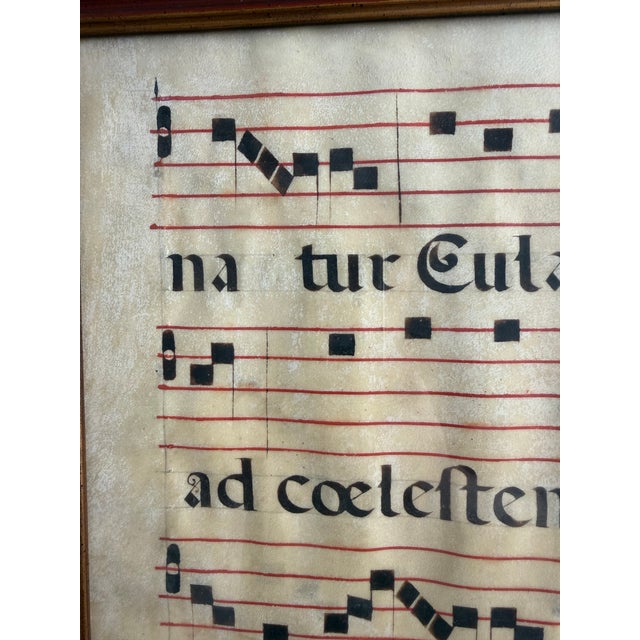 na tur Eula
ad cœlesten